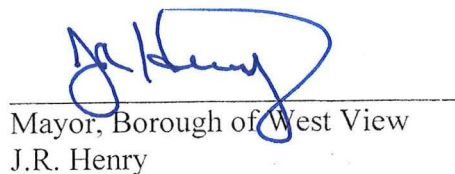 JR Henry
Mayor, Borough of West View
J.R. Henry